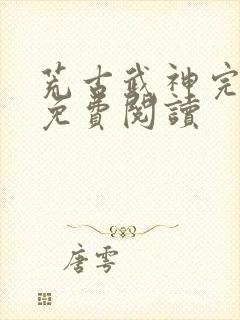 荒古武神完
免費閱讀
唐雩